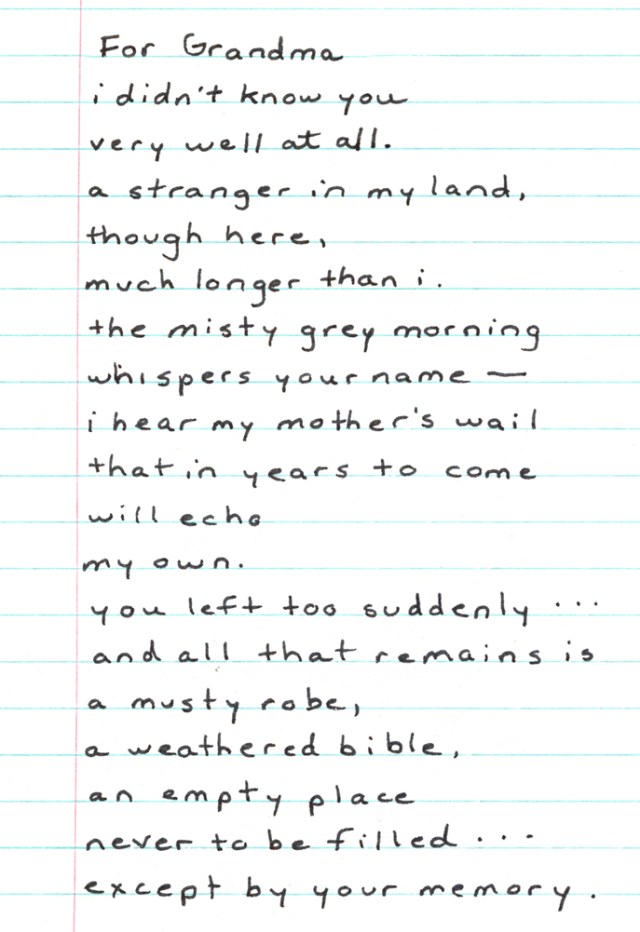 For Grandma
i didn't know you
very well at all.
a stranger in my land,
though here,
much longer than i.
the misty grey morning
whispers your name —
i hear my mother's wail
that in years to come
will echo
my own.
you left too suddenly ...
and all that remains is
a musty robe,
a weathered bible,
an empty place
never to be filled ...
except by your memory.